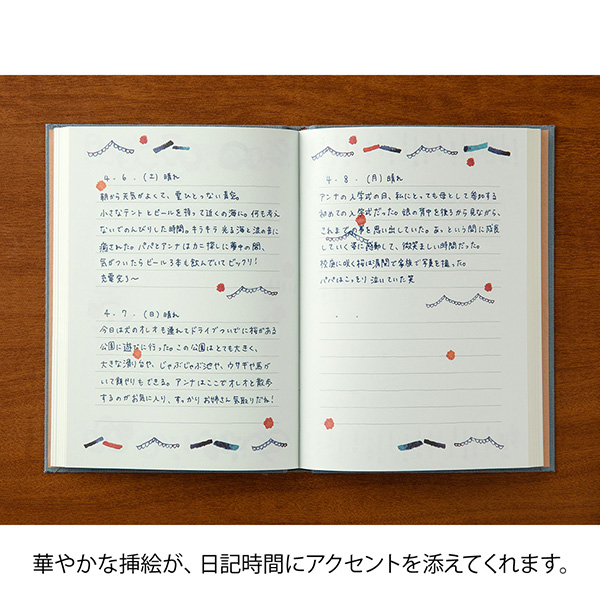 4.6.(土)晴れ
朝から天気がよくて、雲ひとつない青空。
小さなテントとビールを持って近くの海に。何も考え
ないでのんびりした時間。キラキラ光る海と波の音に
癒された。パパとアンナはカニ探しに夢中の間、
気がついたらビール3本も飲んでいてビックリ!
充電完了〜
4.7.(日)晴れ
今日は犬のオレオも連れてドライブついでに桜がある
公園に遊びに行った。この公園はとても大きく、
大きな滑り台や、じゃぶじゃぶ池や、ウサギや馬が
いて餌やりもできる。アンナはここでオレオと散歩
するのがお気に入り、すっかりお姉さん気取りだね!
4.8.(月)晴れ
アンナの入学式の日、私にとっても母として参加する
初めての入学式だった。娘の背中を後ろから見ながら、
これまでの事を思い出していた。あっという間に成長
していく事に感動して、微笑ましい時間だった。
校庭に咲く桜は満開で家族で写真を撮った。
パパはこっそり泣いていた笑
華やかな挿絵が、日記時間にアクセントを添えてくれます。